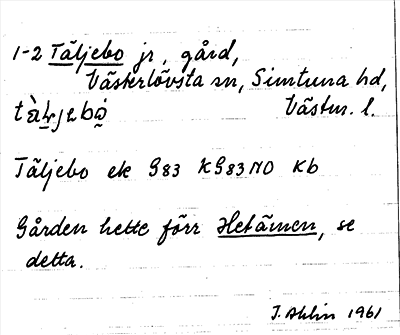 1-2 Täljebo jr, gård,
Västerlövsta sn, Simtuna hd,
Västm. l.
Täljebo ek G83 KG83NO Kb
Gården hette förr Hetämen, se
detta.
J. Ahlin 1961